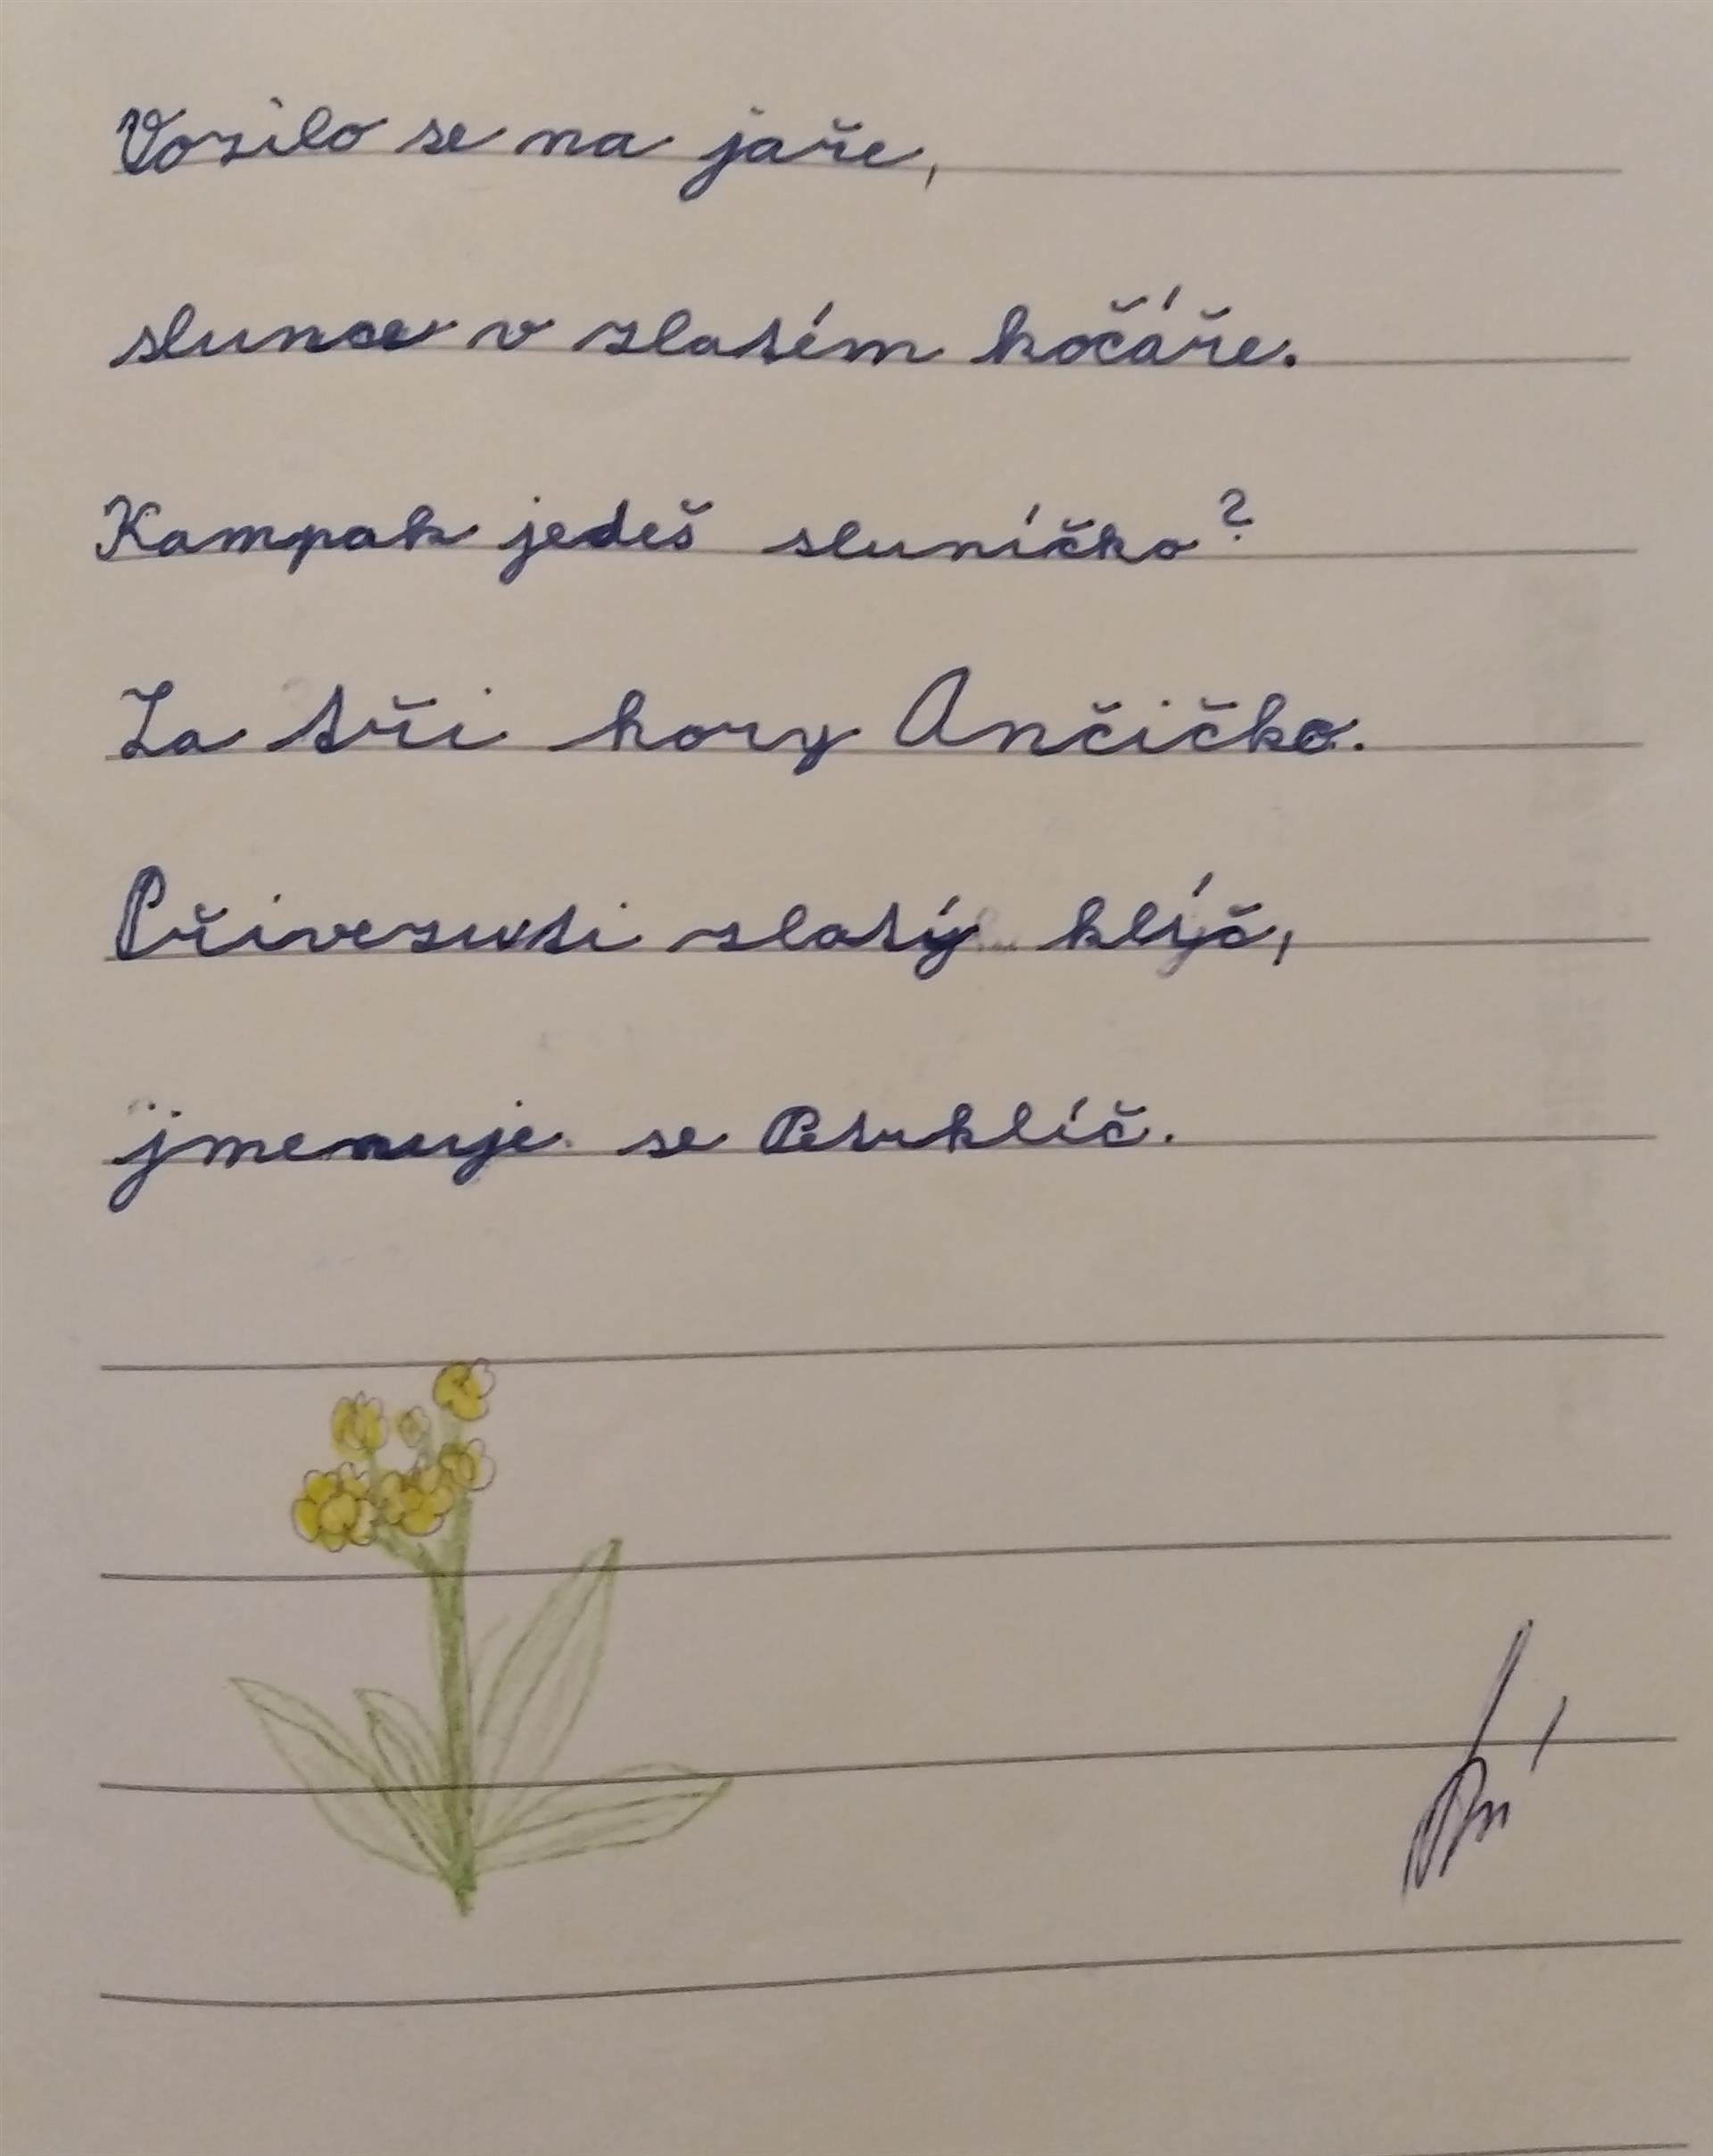 Vozilo se na jaře,
slunce v zlatém kočáře.
Kampak jedeš sluníčko?
Za tři hory Ančičko.
Přivezuti zlatý klýč,
jmenuje se Petrklíč.